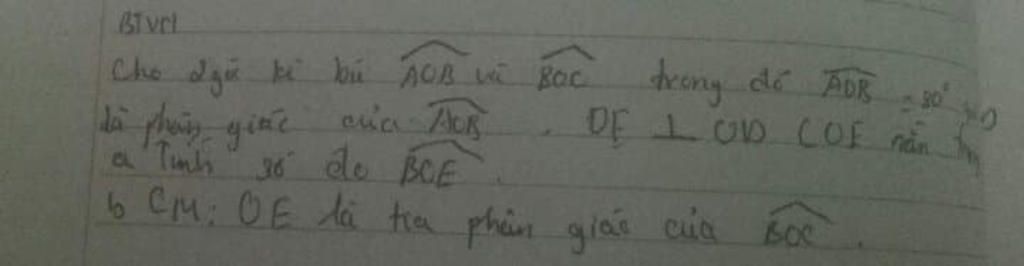 BTVN
Cho 2 góc kề bù AOB và BOC trong đó AOB = 80°
là phân giác của AOB . OE ⊥ OD (OE nằm
a Tính số đo BOE .
b CM: OE là tia phân giác của BOC .